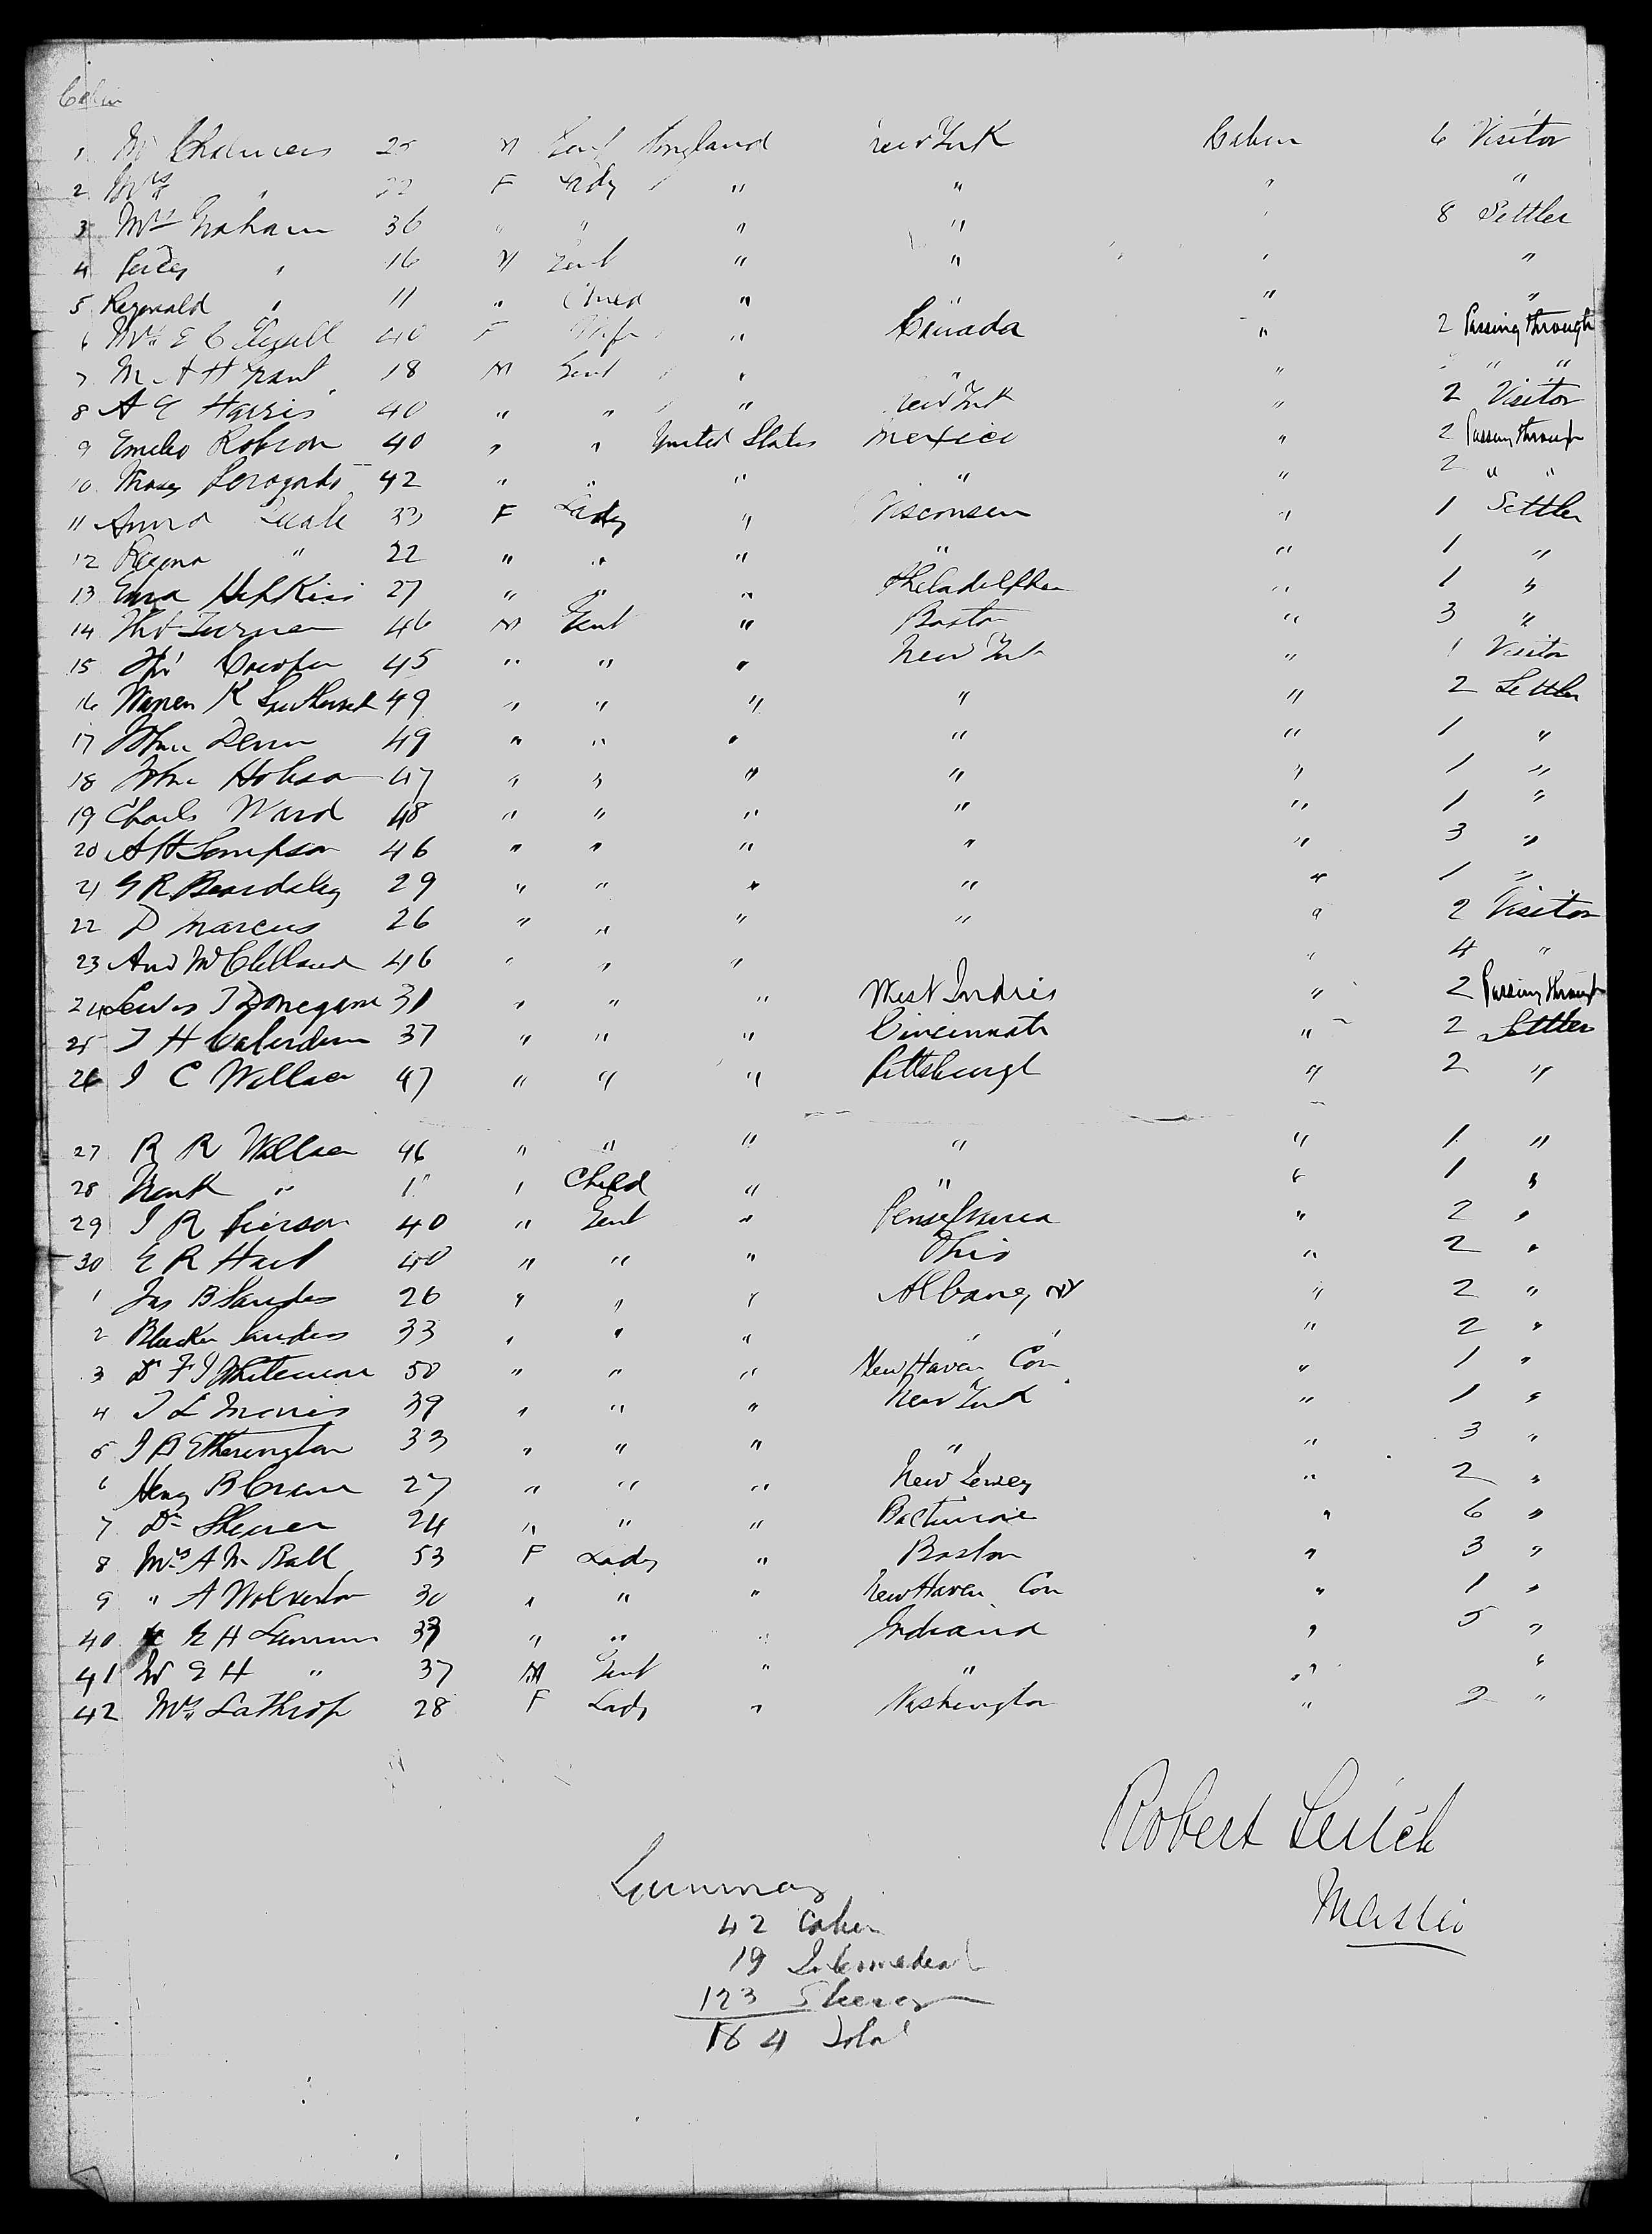 Cabin
1 Mr Chalmers 25 M Gent England New York Cabin 6 Visitor
2 Mrs " 22 F Lady " " " "
3 Mrs Graham 36 " " " " " 8 Settler
4 Percy " 16 M Gent " " " "
5 Reginald " 11 " Child " " " "
6 Mrs E C 40 F Wife " Canada " 2 Passing through
7 Mr A H Grant 18 M Gent " " " " "
8 A E Harris 40 " " " New York " 2 Visitor
9 Emilio Robson 40 " " United States Mexico " 2 Passing through
10 42 " " " " " 2 " "
11 Anna 33 F Lady " Wisconsin " 1 Settler
12 Regina " 22 " " " " " 1 "
13 Hopkins 27 " " " Philadelphia " 1 "
14 Thos Turner 46 M Gent " Boston " 3 "
15 Cowper 45 " " " New York " 1 Visitor
16 Warren K 49 " " " " " 2 Settler
17 John Denn 49 " " " " " 1 "
18 John Hobson 47 " " " " " 1 "
19 Charles Ward 48 " " " " " 1 "
20 A H Sampson 46 " " " " " 3 "
21 G R Beardsley 29 " " " " " 1 "
22 D Marcus 26 " " " " " 2 Visitor
23 And McClelland 46 " " " " 4 "
24 Lewis J Donegan 31 " " " West Indies " 2 Passing through
25 J H 37 " " " Cincinnati " 2 Settler
26 J C Wallace 47 " " " Pittsburgh " 2 "
27 R R Wallace 46 " " " " " 1 "
28 Frank " 1 " Child " " " 1 "
29 J R Pierson 40 " Gent " Pensylvania " 2 "
30 E R Hart 40 " " " Ohio " 2 "
1 Jas B Sanders 26 " " " Albany NY " 2 "
2 Sanders 33 " " " " " " 2 "
3 Dr F J Whitemore 50 " " " New Haven Con " 1 "
4 J L Morris 39 " " " New York " 1 "
5 J B Etherington 33 " " " " " 3 "
6 Henry B Crane 27 " " " New Jersey " 2 "
7 Dr Shearer 24 " " " Baltimore " 6 "
8 Mrs A M Ball 53 F Lady " Boston " 3 "
9 " A Wolverton 30 " " " New Haven Con " 1 "
40 E H 39 " " " Indiana " 5 "
41 E H " 37 M Gent " " " "
42 Mrs Lathrop 28 F Lady " Washington " 2 "
Robert Leitch
Master
Summary
42 Cabin
19 Intermediate
123 Steerage
184 Total